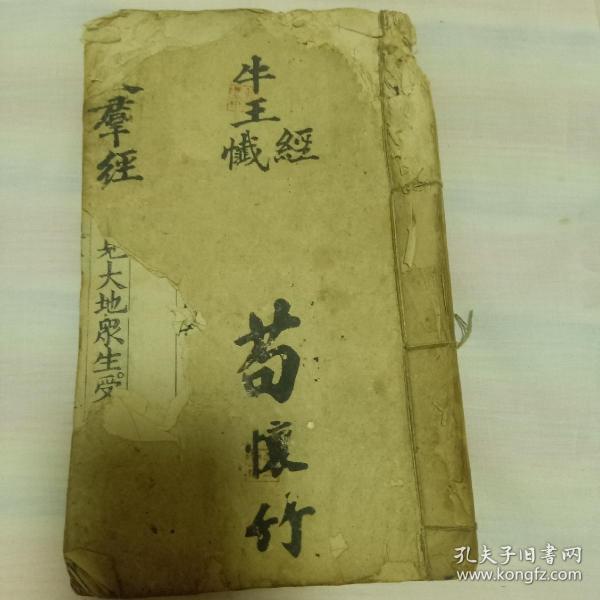 經
牛王懺
苟懷竹
羣經
見大地眾生受
孔夫子旧书网
www.kongfz.com